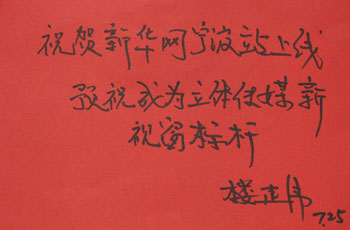 祝贺新华网宁波站上线
预祝成为立体传媒新
视窗标杆
楼建伟
7.25